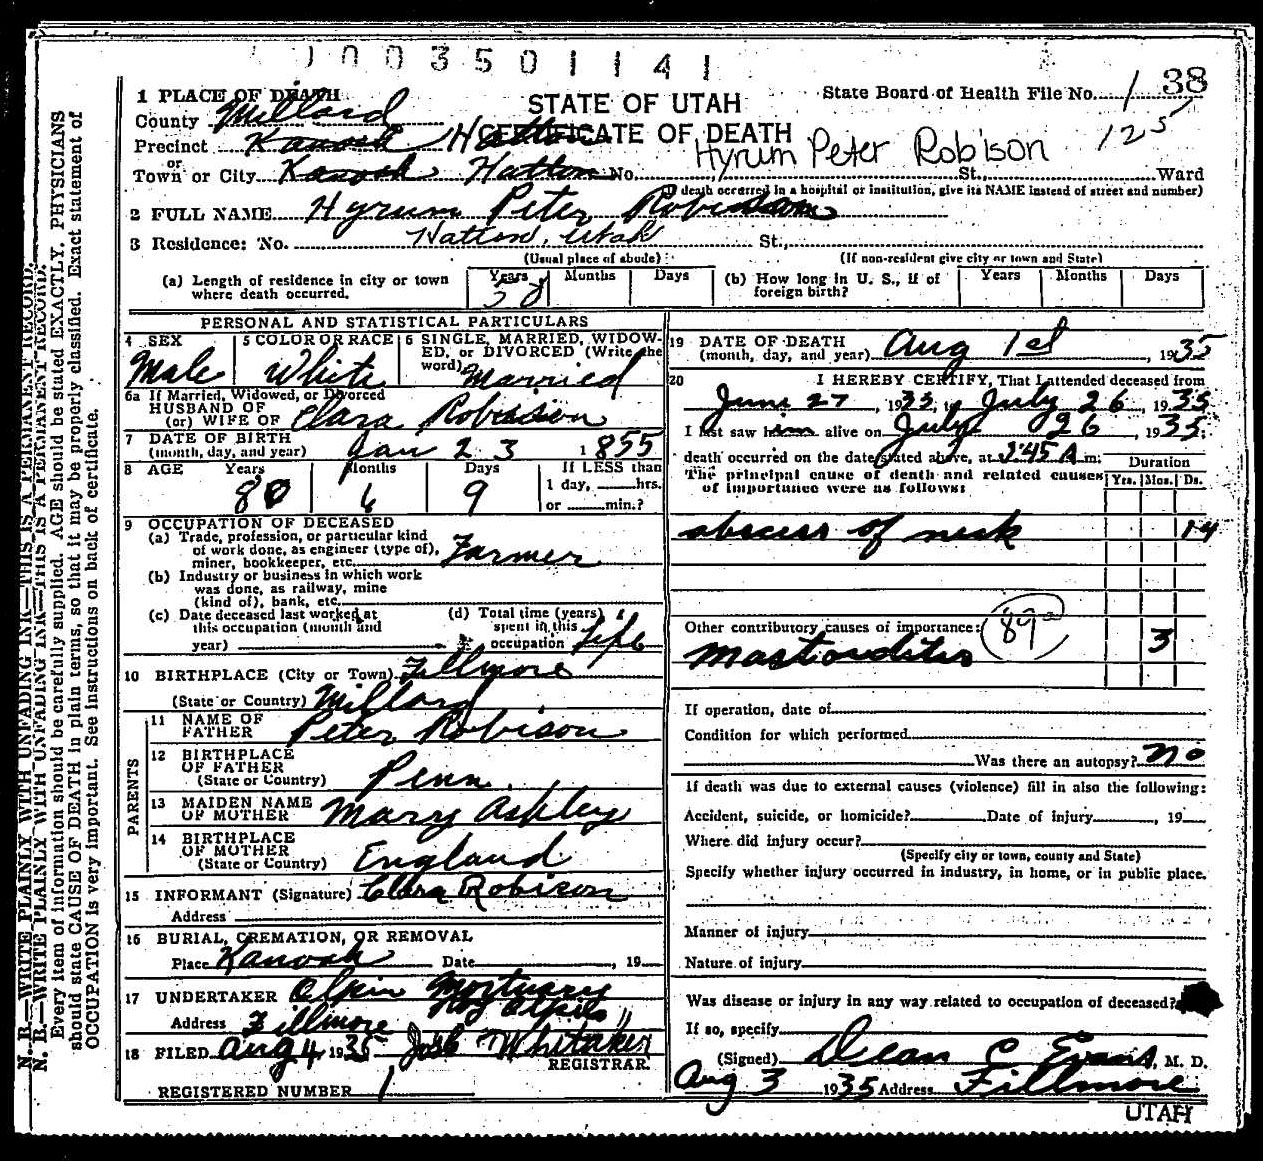 1003501141
1 PLACE OF DEATH
County Millard
STATE OF UTAH
CERTIFICATE OF DEATH
State Board of Health File No. 1 38
125
Precinct Kanosh Hatton
Hyrum Peter Robison
or
Town or City Kanosh Hatton No. St., Ward
(If death occurred in a hospital or institution, give its NAME instead of street and number)
2 FULL NAME Hyrum Peter Robison
3 Residence: No. Hatton, Utah St.,
(Usual place of abode) (If non-resident give city or town and State)
(a) Length of residence in city or town where death occurred. Years 50 Months Days
(b) How long in U. S., if of foreign birth? Years Months Days
PERSONAL AND STATISTICAL PARTICULARS
4 SEX 5 COLOR OR RACE 6 SINGLE, MARRIED, WIDOWED, or DIVORCED (Write the word)
Male White Married
6a If Married, Widowed, or Divorced
HUSBAND OF
(or) WIFE OF Clara Robison
7 DATE OF BIRTH
(month, day, and year) Jan 23 1855
8 AGE Years Months Days If LESS than
80 6 9 1 day, hrs.
or min.?
9 OCCUPATION OF DECEASED
(a) Trade, profession, or particular kind
of work done, as engineer (type of),
miner, bookkeeper, etc. Farmer
(b) Industry or business in which work
was done, as railway, mine
(kind of), bank, etc.
(c) Date deceased last worked at
this occupation (month and
year)
(d) Total time (years)
spent in this
occupation life
10 BIRTHPLACE (City or Town) Fillmore
(State or Country) Millard
PARENTS
11 NAME OF
FATHER Peter Robison
12 BIRTHPLACE
OF FATHER
(State or Country) Penn.
13 MAIDEN NAME
OF MOTHER Mary Ashley
14 BIRTHPLACE
OF MOTHER
(State or Country) England
15 INFORMANT (Signature) Clara Robison
Address
16 BURIAL, CREMATION, OR REMOVAL
Place Kanosh Date , 19
17 UNDERTAKER Olpin Mortuary
Address Fillmore
18 FILED Aug 4, 1935 Whitaker
REGISTRAR.
REGISTERED NUMBER 1
19 DATE OF DEATH
(month, day, and year) Aug 1st, 1935
20 I HEREBY CERTIFY, That I attended deceased from
June 27, 1935, to July 26, 1935
I last saw him alive on July 26, 1935;
death occurred on the date stated above, at 3:45 A m.
Duration
The principal cause of death and related causes
of importance were as follows: Yrs. Mos. Ds.
abscess of neck 14
Other contributory causes of importance: 89a
Mastoiditis 3
If operation, date of
Condition for which performed
Was there an autopsy? No
If death was due to external causes (violence) fill in also the following:
Accident, suicide, or homicide? Date of injury , 19
Where did injury occur?
(Specify city or town, county and State)
Specify whether injury occurred in industry, in home, or in public place.
Manner of injury
Nature of injury
Was disease or injury in any way related to occupation of deceased?
If so, specify
(Signed) Dean C Evans, M. D.
Aug 3 1935 Address Fillmore
UTAH
N. B.—WRITE PLAINLY WITH UNFADING INK—THIS IS A PERMANENT RECORD.
N. B.—WRITE PLAINLY WITH UNFADING INK—THIS IS A PERMANENT RECORD.
Every item of information should be carefully supplied. AGE should be stated EXACTLY. PHYSICIANS
should state CAUSE OF DEATH in plain terms, so that it may be properly classified. Exact statement of
OCCUPATION is very important. See instructions on back of certificate.